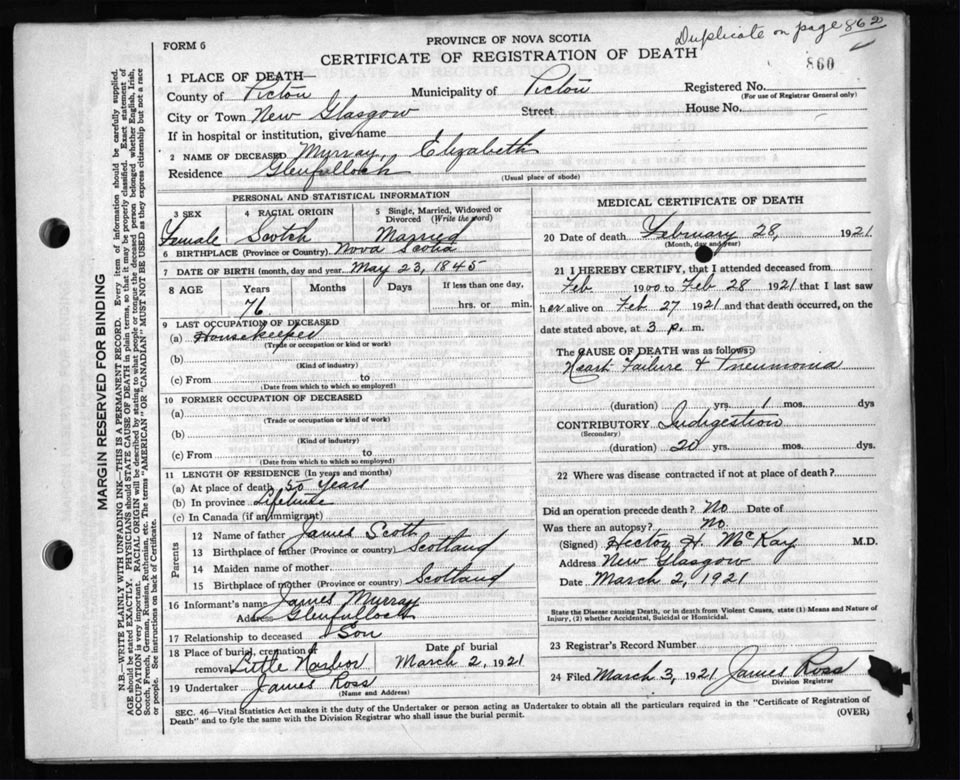 Duplicate on page 862
FORM 6
PROVINCE OF NOVA SCOTIA
CERTIFICATE OF REGISTRATION OF DEATH
860
1 PLACE OF DEATH—
County of Pictou Municipality of Pictou Registered No.
(For use of Registrar General only)
City or Town New Glasgow Street House No.
If in hospital or institution, give name
2 NAME OF DECEASED Murray, Elizabeth
Residence Glenfulloch
(Usual place of abode)
PERSONAL AND STATISTICAL INFORMATION
3 SEX 4 RACIAL ORIGIN 5 Single, Married, Widowed or Divorced (Write the word)
Female Scotch Married
6 BIRTHPLACE (Province or Country) Nova Scotia
7 DATE OF BIRTH (month, day and year) May 23, 1845
8 AGE Years Months Days If less than one day,
76 hrs. or min.
9 LAST OCCUPATION OF DECEASED
(a) Housekeeper
(Trade or occupation or kind or work)
(b)
(Kind of industry)
(c) From to
(Date from which to which so employed)
10 FORMER OCCUPATION OF DECEASED
(a)
(Trade or occupation or kind or work)
(b)
(Kind of industry)
(c) From to
(Date from which to which so employed)
11 LENGTH OF RESIDENCE (In years and months)
(a) At place of death 50 Years
(b) In province Lifetime
(c) In Canada (if an immigrant)
Parents
12 Name of father James Scott
13 Birthplace of father (Province or country) Scotland
14 Maiden name of mother
15 Birthplace of mother (Province or country) Scotland
16 Informant's name James Murray
Address Glenfulloch
17 Relationship to deceased Son
18 Place of burial, cremation or removal Little Harbor Date of burial March 2, 1921
19 Undertaker James Ross
(Name and Address)
MEDICAL CERTIFICATE OF DEATH
20 Date of death February 28, 1921
(Month, day and year)
21 I HEREBY CERTIFY, that I attended deceased from
Feb 1900 to Feb 28 1921 that I last saw
her alive on Feb 27 1921 and that death occurred, on the
date stated above, at 3 p. m.
The CAUSE OF DEATH was as follows:
Heart Failure & Pneumonia
(duration) yrs. 1 mos. dys
CONTRIBUTORY Indigestion
(Secondary)
(duration) 20 yrs. mos. dys.
22 Where was disease contracted if not at place of death?
Did an operation precede death? No Date of
Was there an autopsy? No.
(Signed) Hector H. McKay M.D.
Address New Glasgow
Date March 2, 1921
State the Disease causing Death, or in death from Violent Causes, state (1) Means and Nature of
Injury, (2) whether Accidental, Suicidal or Homicidal.
23 Registrar's Record Number
24 Filed March 3, 1921 James Ross
Division Registrar
SEC. 46—Vital Statistics Act makes it the duty of the Undertaker or person acting as Undertaker to obtain all the particulars required in the "Certificate of Registration of
Death" and to fyle the same with the Division Registrar who shall issue the burial permit. (OVER)
MARGIN RESERVED FOR BINDING
N.B.—WRITE PLAINLY WITH UNFADING INK—THIS IS A PERMANENT RECORD. Every item of information should be carefully supplied.
AGE should be stated EXACTLY. PHYSICIANS should STATE CAUSE OF DEATH in plain terms, so that it may be properly classified. Exact statement of
OCCUPATION is very important. RACIAL ORIGIN will be described by stating to what people or tongue the deceased person belonged whether English, Irish,
Scotch, French, German, Russian, Ruthenian, etc. The terms "AMERICAN" OR "CANADIAN" MUST NOT BE USED as they express citizenship but not a race
or people. See instructions on back of Certificate.